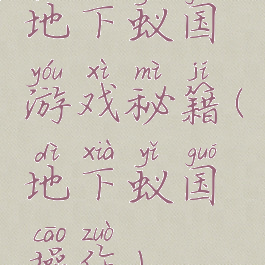 地下蚁国
yóu xì mì jí
游戏秘籍(
dì xià yǐ guó
地下蚁国
cāo zuò
操作)